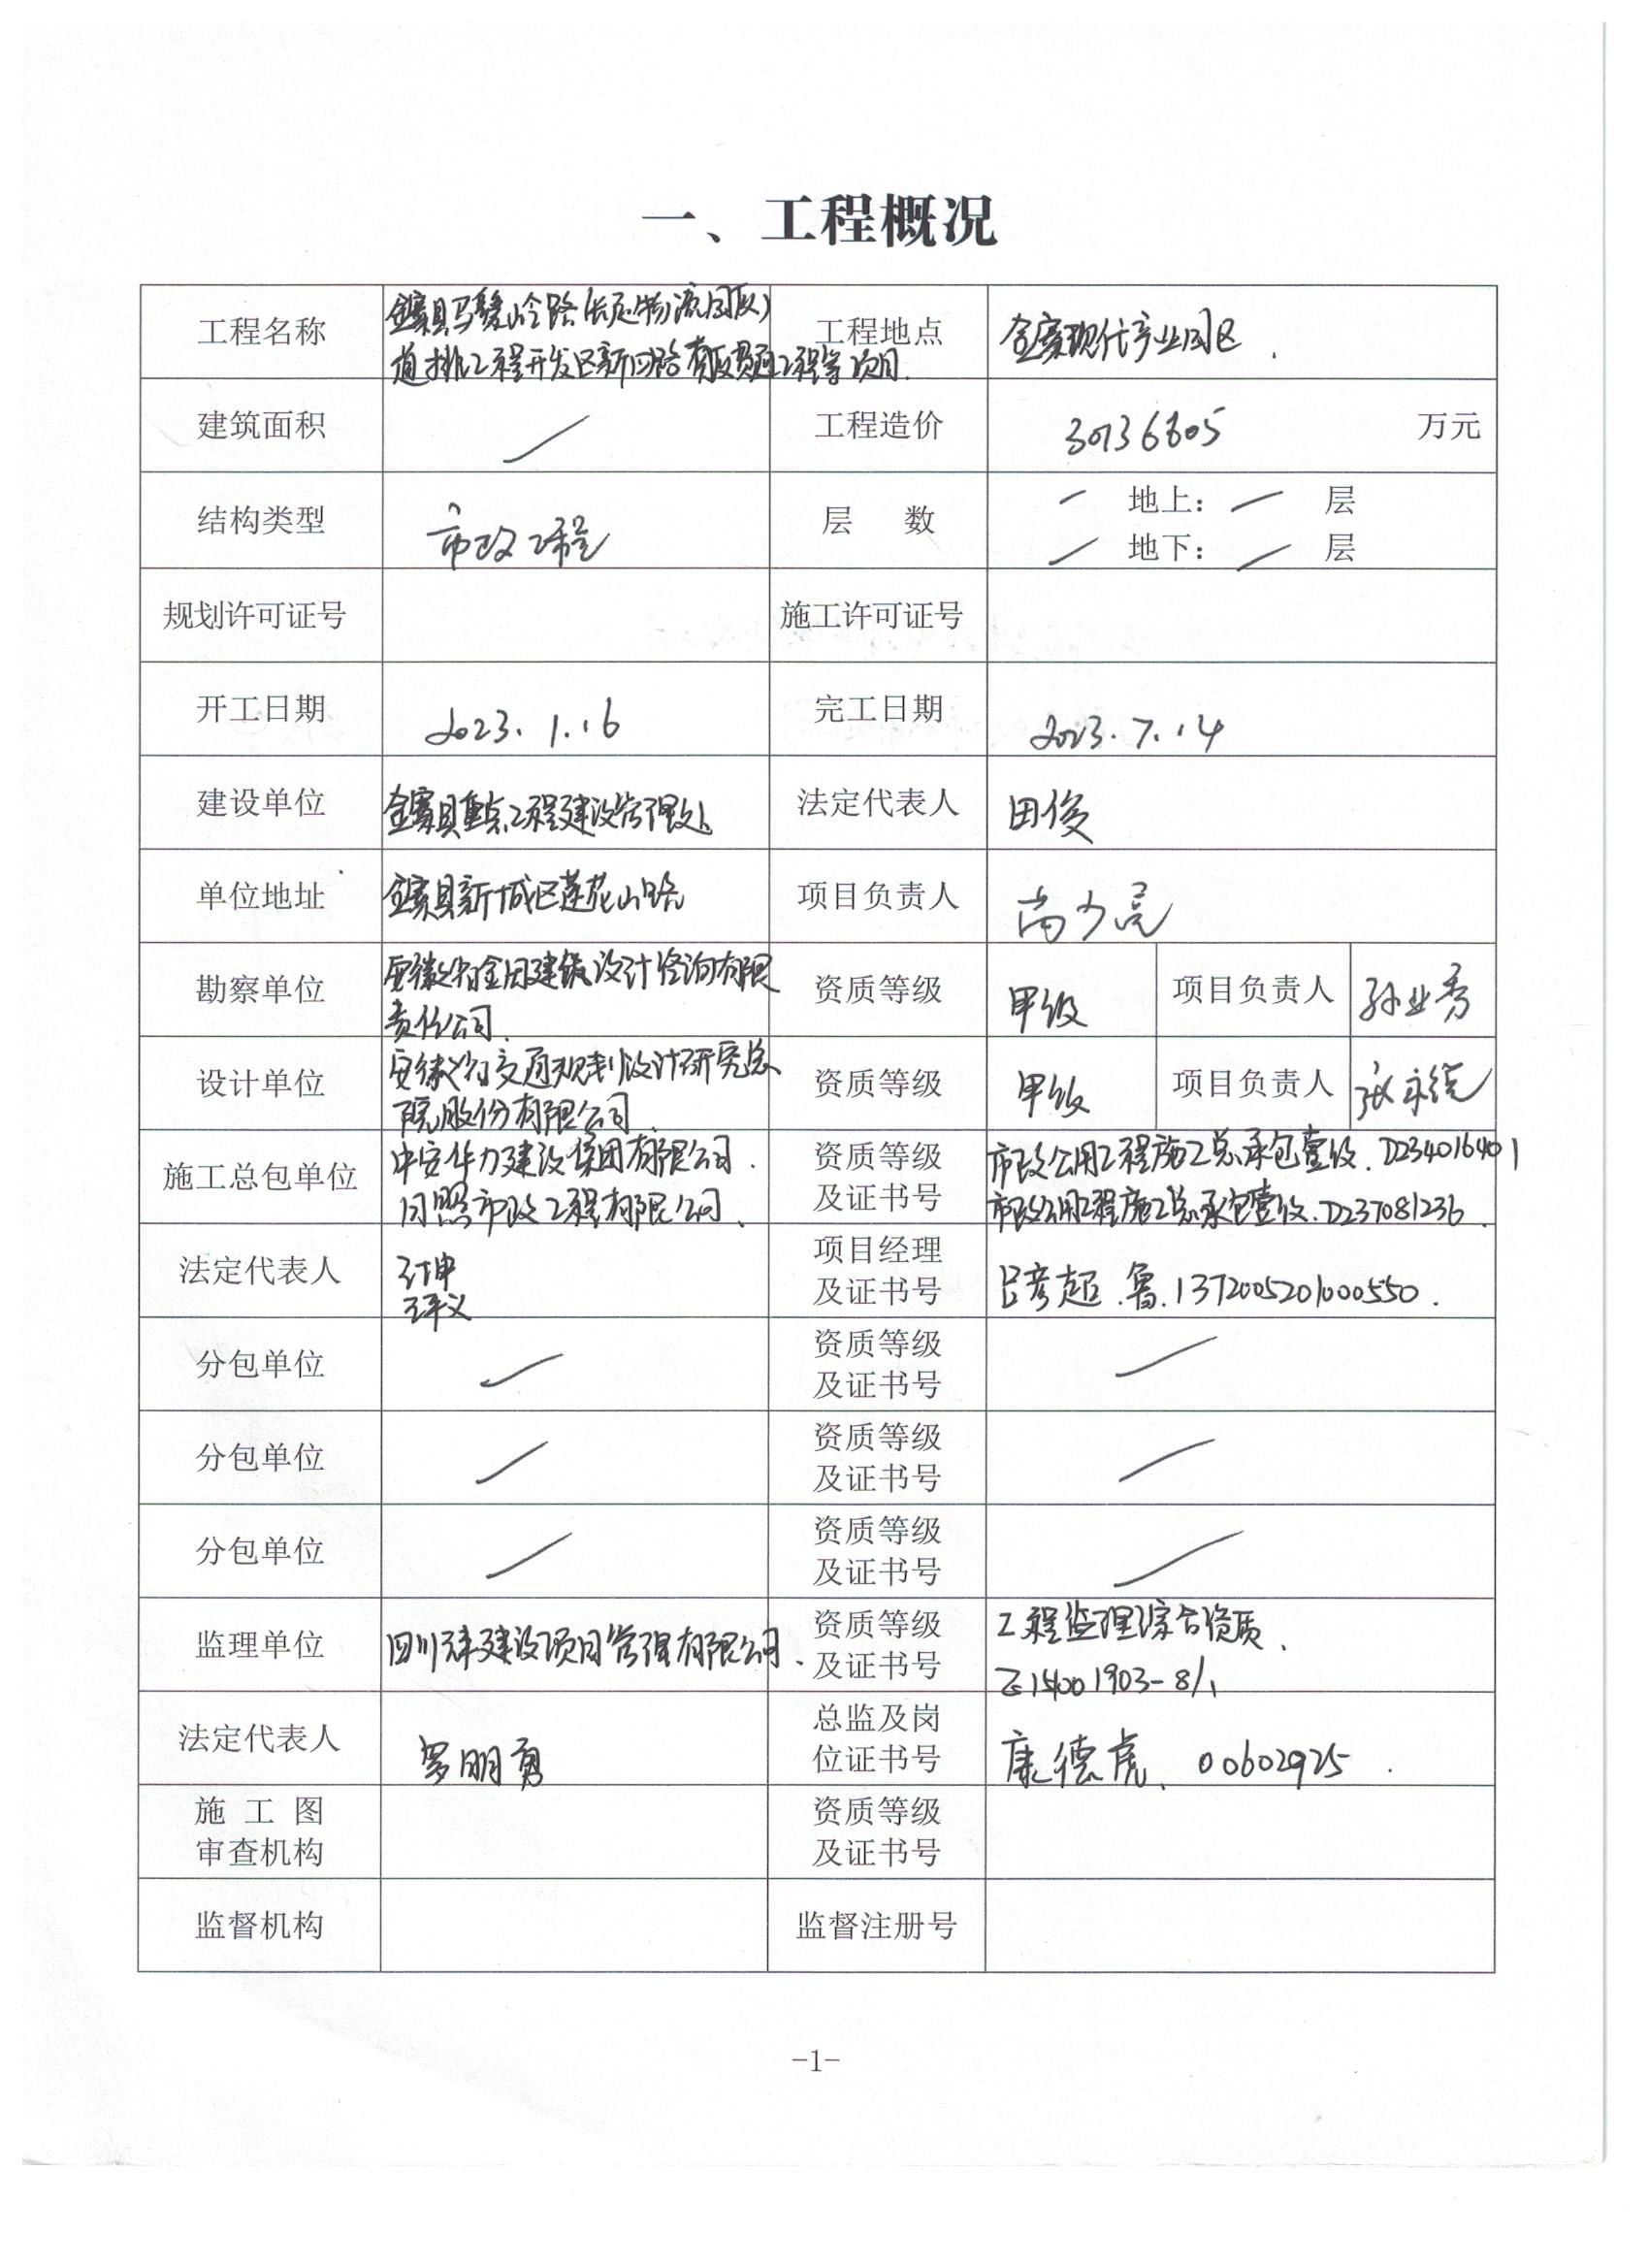 一、工程概况
工程名称 金寨县马鬃岭路(长江物流园段) 工程地点 金寨现代产业园区.
道排工程开发区新四路南段贯通工程等项目.
建筑面积 / 工程造价 万元
结构类型 市政工程 层 数 / 地上: / 层
/ 地下: / 层
规划许可证号 施工许可证号
开工日期 2023.1.16 完工日期 2023.7.14
建设单位 金寨县重点工程建设管理处 法定代表人 田俊
单位地址 金寨县新城区莲花山路 项目负责人 尚少亮
勘察单位 安徽省金田建筑设计咨询有限 资质等级 甲级 项目负责人 孙业秀
责任公司.
设计单位 安徽省交通规划设计研究总 资质等级 甲级 项目负责人 张永
院股份有限公司.
施工总包单位 中安华力建设集团有限公司. 资质等级 市政公用工程施工总承包壹级. D234016401
日照市政工程有限公司. 及证书号 市政公用工程施工总承包壹级. D237081236.
法定代表人 坤 项目经理
义 及证书号 吕彦超.鲁.1372005201000550.
分包单位 / 资质等级 /
及证书号
分包单位 / 资质等级 /
及证书号
分包单位 / 资质等级 /
及证书号
监理单位 四川建设项目管理有限公司. 资质等级 工程监理综合资质.
及证书号 1903-8/1
法定代表人 罗明勇 总监及岗
位证书号 康德虎、00602925.
施 工 图 资质等级
审查机构 及证书号
监督机构 监督注册号
-1-